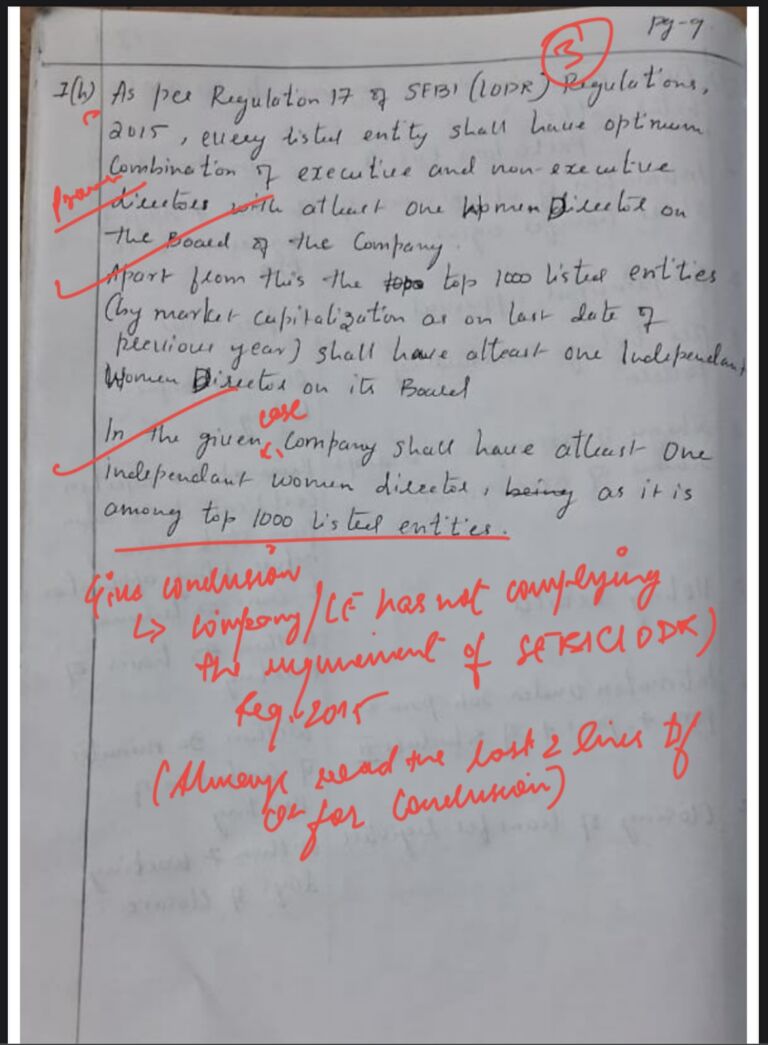 pg-9
3
1(h) As per Regulation 17 of SEBI (LODR) Regulations,
2015, every listed entity shall have optimum
Combination of executive and non-executive
directors with atleast one Women Director on
the Board of the Company.
Apart from this the top 1000 listed entities
(by market capitalization as on last date of
previous year) shall have atleast one Independant
Women Director on its Board
case
In the given Company shall have atleast One
independant women director, being as it is
among top 1000 listed entities.
Give conclusion
↳ Company/LE has not complying
the requirement of SEBI(LODR)
Reg. 2015
(Always read the last 2 lines of
Qs for Conclusion)